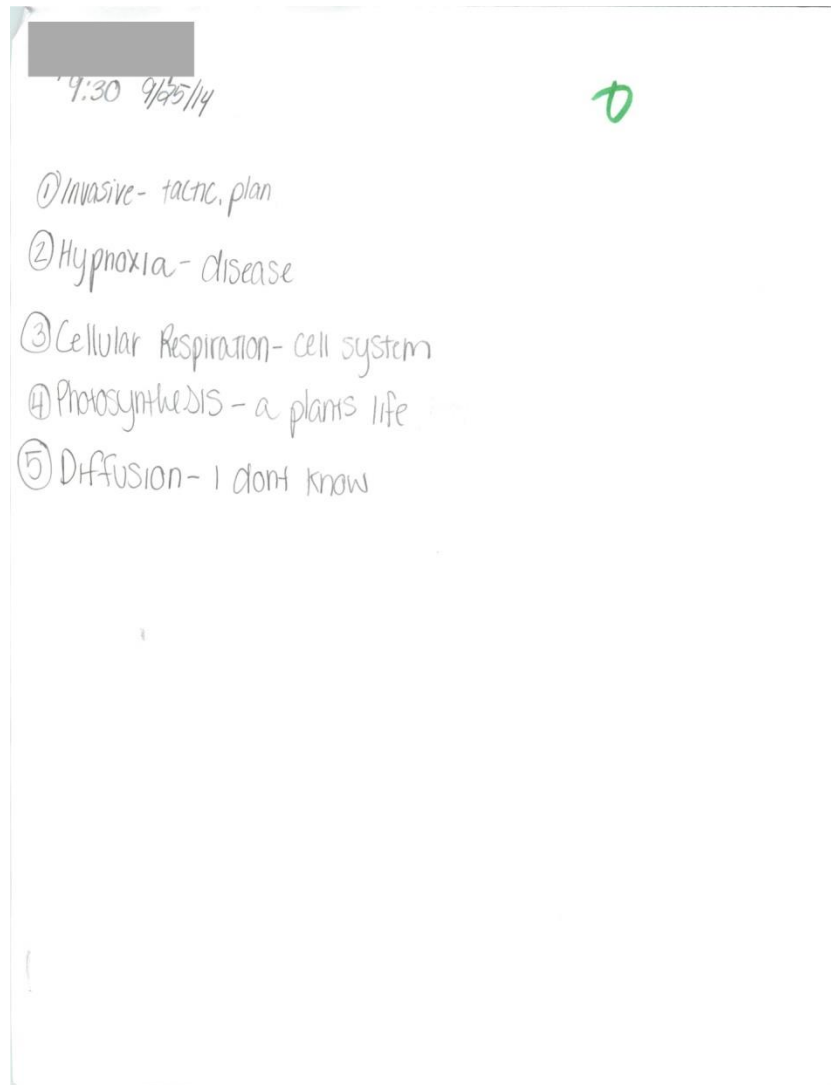 9:30 9/25/14
① Invasive - tactic, plan
② Hypnoxia - disease
③ Cellular Respiration - cell system
④ Photosynthesis - a plants life
⑤ Diffusion - I dont know